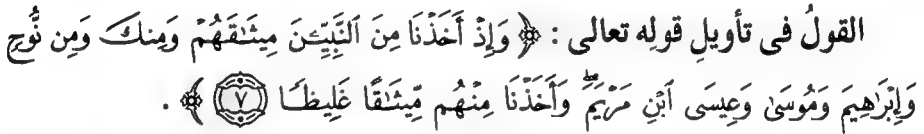 القولُ فى تأويلِ قولِه تعالى : ﴿ وَإِذْ أَخَذْنَا مِنَ ٱلنَّبِيِّـۧنَ مِيثَـٰقَهُمْ وَمِنكَ وَمِن نُّوحٍ
وَإِبْرَٰهِيمَ وَمُوسَىٰ وَعِيسَى ٱبْنِ مَرْيَمَۖ وَأَخَذْنَا مِنْهُم مِّيثَـٰقًا غَلِيظًا ۝٧ ﴾ .